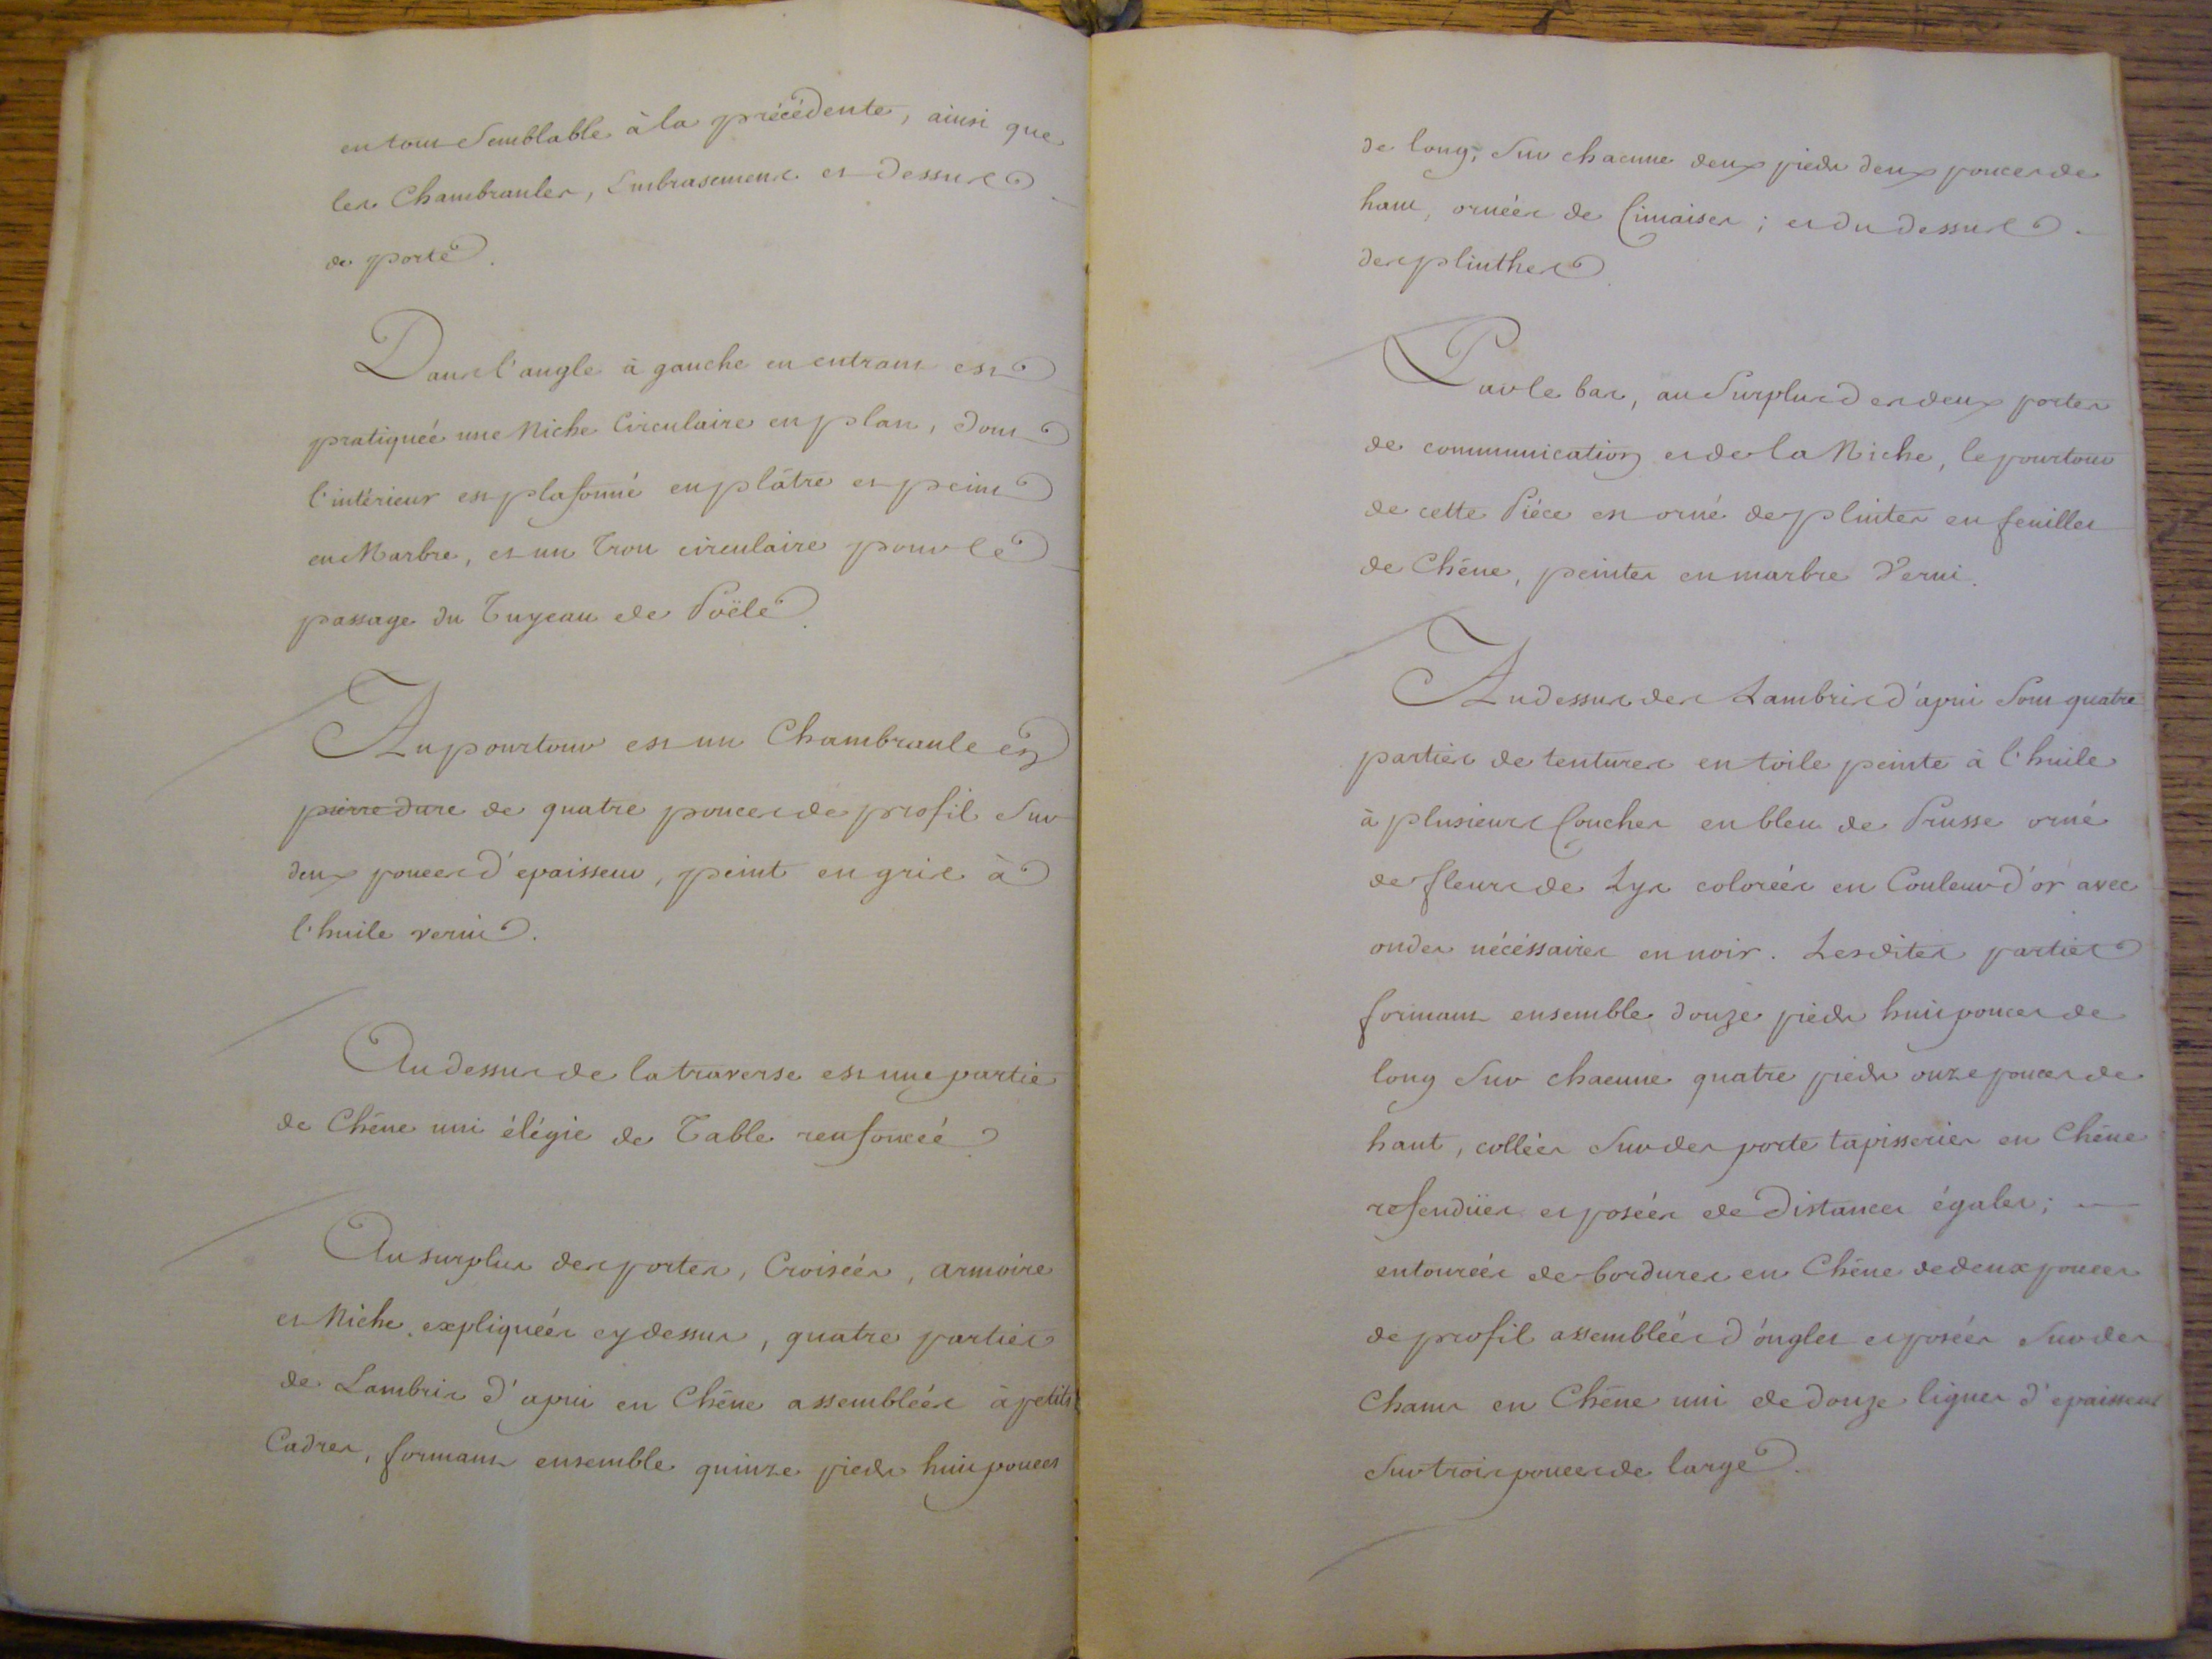 en tout Semblable à la précédente, ainsi que
les Chambranles, Embrasemens et dessus
de porte.
Dans l'angle à gauche en entrant est
pratiquée une Niche Circulaire en plan, dont
l'intérieur est plafonné en plâtre et peint
en Marbre, et un Trou circulaire pour le
passage du Tuyeau de Poële.
Au pourtour est un Chambranle en
pierre dure de quatre pouces de profil Sur
deux pouces d'epaisseur, peint en gris à
l'huile verni.
Au dessus de la traverse est une partie
de Chêne uni élégie de Table renfoncée
Au surplus des portes, Croisées, armoire
et Niche expliquées cy dessus, quatre parties
de Lambris d'apui en Chêne assemblées à petits
Cadres, formant ensemble quinze pieds huit pouces
de long, Sur chacune deux pieds deux pouces de
haut, ornées de Cimaises; et du dessus
des plinthes.
Par le bas, au Surplus des deux portes
de communication et de la Niche, le pourtour
de cette Piéce est orné de plintes en feuilles
de Chêne, peintes en marbre Verni.
Au dessus des Lambris d'apui Sont quatre
parties de tentures en toile peinte à l'huile
à plusieurs Couches en bleu de Prusse orné
de fleurs de Lys colorées en Couleur d'or avec
ondes nécéssaires en noir. Lesdites parties
formant ensemble douze pieds huit pouces de
long Sur chacune quatre pieds onze pouces de
haut, collées Sur des porte tapisseries en Chêne
refendües et posées de distances égales;
entourées de bordures en Chêne de deux pouces
de profil assemblées d'ongles et posées Sur des
Champs en Chêne uni de douze lignes d'epaisseur
Sur trois pouces de large.